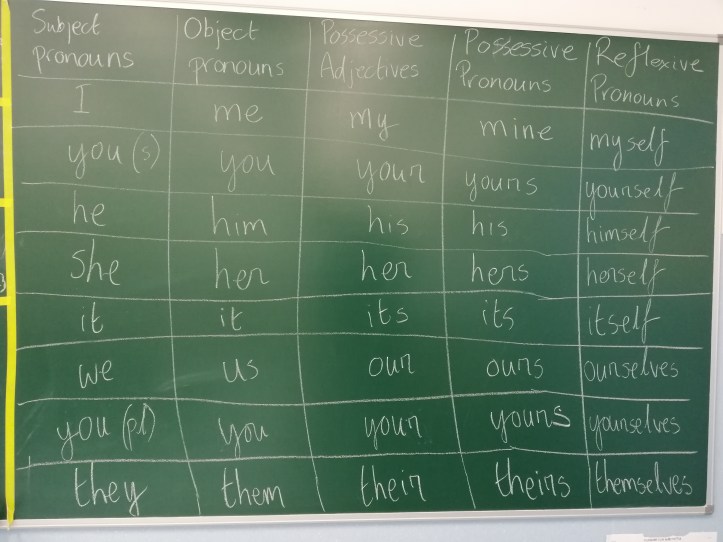 Subject pronouns Object pronouns Possessive Adjectives Possessive Pronouns Reflexive Pronouns
I me my mine myself
you (s) you your yours yourself
he him his his himself
She her her hers herself
it it its its itself
we us our ours ourselves
you (pl) you your yours yourselves
they them their theirs themselves